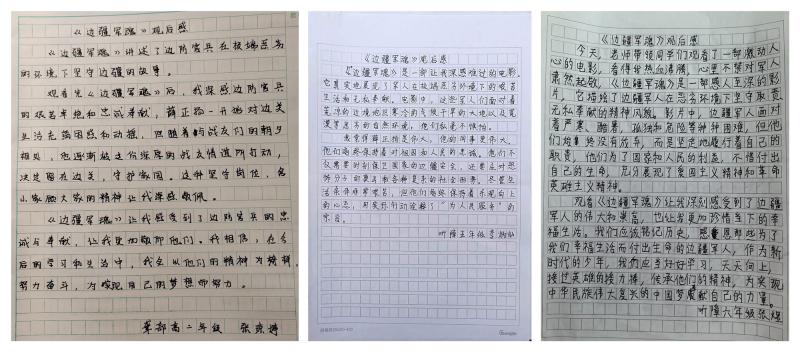 《边疆军魂》观后感
《边疆军魂》讲述了边防官兵在极端恶劣
的环境下坚守边疆的故事。
观看完《边疆军魂》后，我深感边防官兵
的艰苦卓绝和忠诚奉献，薛正
一开始对边关
生活充满困惑和动摇，但随着与战友们的朝夕
相处，他逐渐被这份深厚的战友情谊所打动，
决定留在边关，守护家园。这种坚守岗位，舍
小家顾大家的精神让我深感敬佩。
《边疆军魂》让我感受到了边防官兵的忠
诚与奉献，让我更加敬仰他们。我相信，在今
后的学习和生活中，我会以他们的精神为榜样，
努力奋斗，为实现自己的梦想而努力。
高二年级
《边疆军魂》观后感
《边疆军魂》是一部让我深感难过的电影，
它真实地展现了军人在极端恶劣环境下的艰苦
生活和无私奉献。电影中，这些军人们面对着
荒凉的边境地区寒冷的气候干旱的大地以及荒
漠等恶劣的自然环境，他们从来不惧怕。
他们
始终保持着对祖国和人民的忠诚。他们不
仅需要时刻保卫国家的边疆安全，还要应对恐
怖分子的袭击和各种复杂的社会因素。尽管生
活条件非常艰苦，但他们始终保持着乐观向上
的心态，用实际行动诠释了“为人民服务”的
宗旨。
听障五年级 李
《边疆军魂》观后感
今天，老师带领同学们观看了一部激动人
心的电影，看得我热血沸腾，心里不禁对军人
肃然起敬，《边疆军魂》为是一部感人至深的影
片，它描绘了边疆军人在恶劣环境下坚守职责，
无私奉献的精神风貌。影片中，边疆军人面对
着严寒、酷暑、孤独和危险等种种困难，但他
们始终没有放弃，而是坚定地履行着自己的
职责，他们为了国家和人民的利益，不惜付出
自己的生命，充分展现了爱国主义精神和革命
英雄主义精神。
观看《边疆军魂》让我深刻感受到了边疆
军人的伟大和崇高，也让我更加珍惜当下的幸
福生活。我们应该铭记历史，感恩那些为了
我们幸福生活而付出生命的边疆军人，作为新
时代的少年，我们应当好好学习，天天向上，
接过英雄的接力棒，传承他们的精神，为实现
中华民族伟大复兴的中国梦贡献自己的力量。
听障六年级张煜